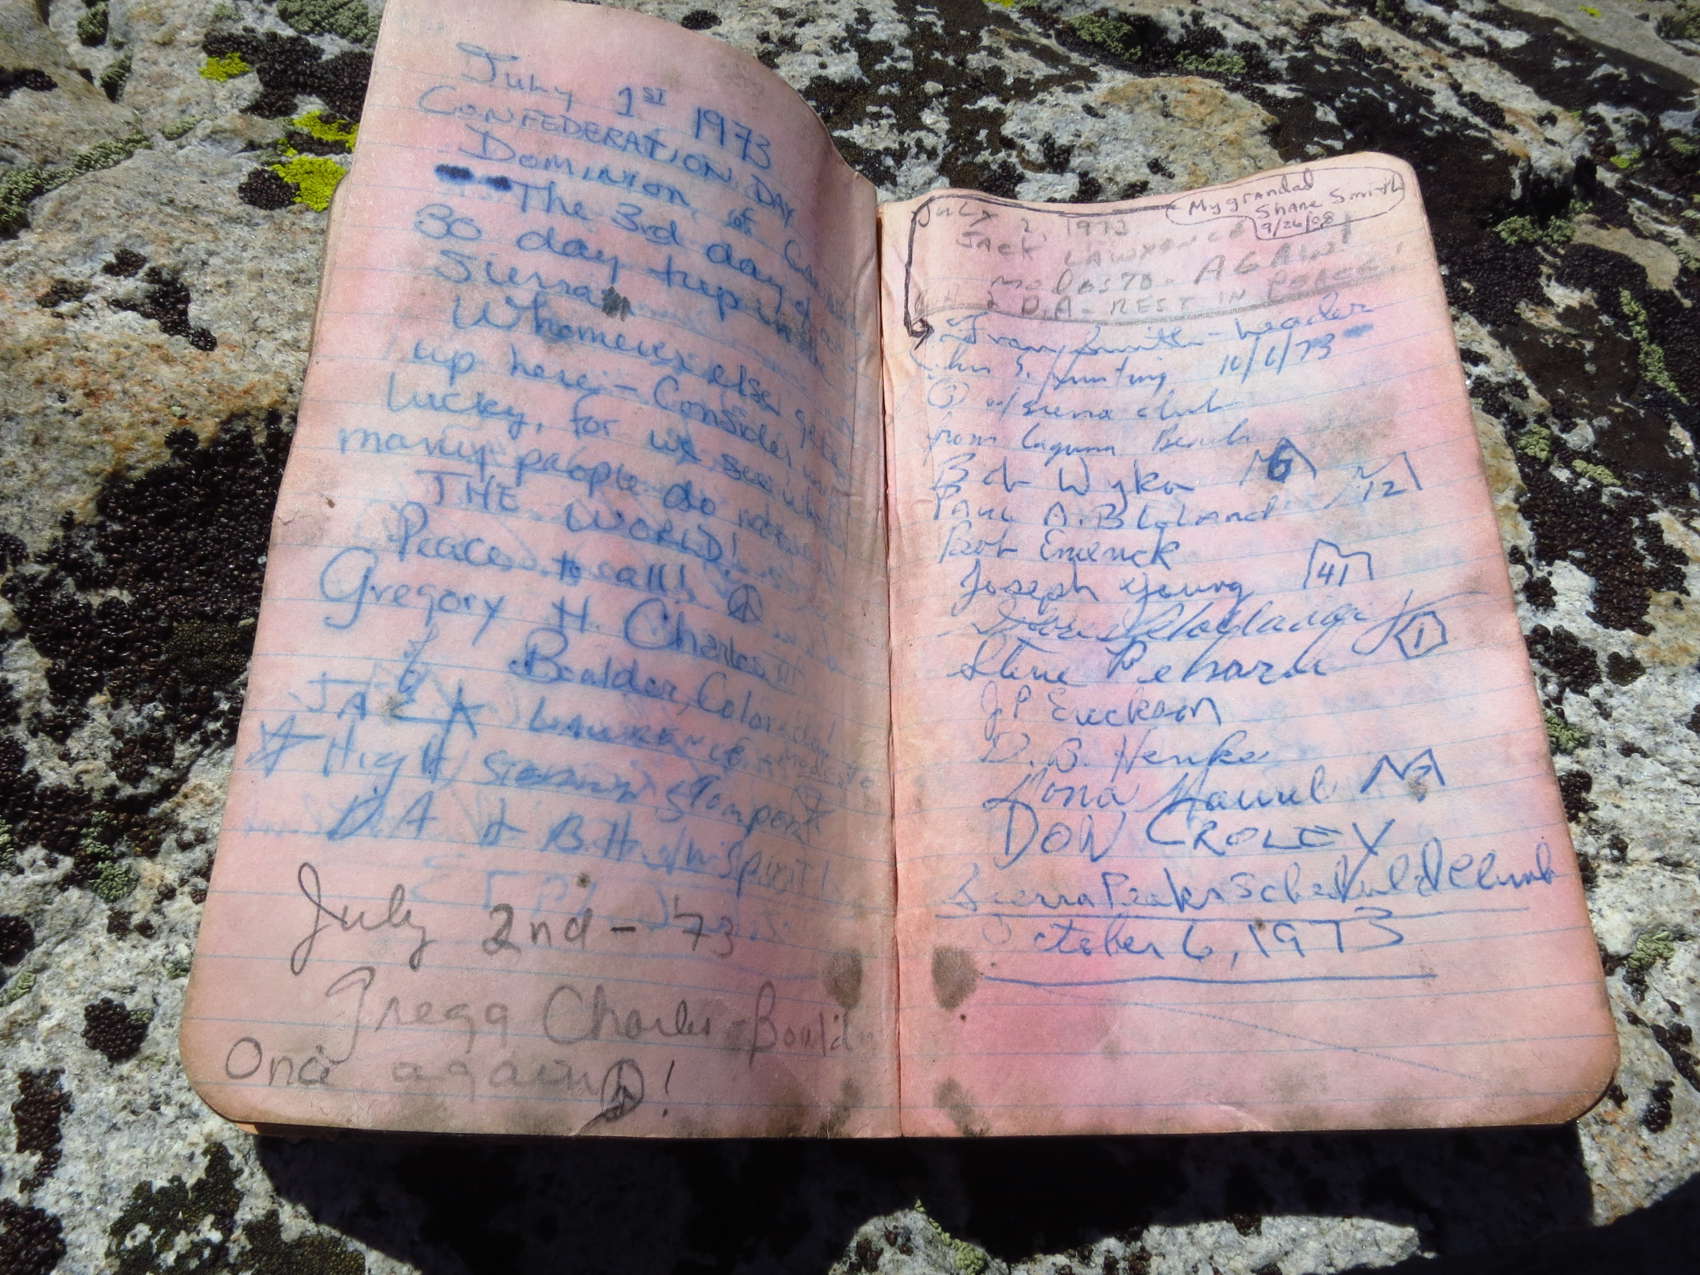 July 1ST 1973
CONFEDERATION DAY
DOMINION of
The 3rd day of
30 day trip in
Sierra
Whomever else gets
up here - Consider
lucky, for we see what
many people do not
THE WORLD!
Peace to all!
Gregory H. Charles III
of Boulder, Colorado!
JACK LAWRENCE
HIGH SIERRA STOMPER
D.A & B.H. in Spirit!
July 2nd - '73
Gregg Charles - Bould
Once again !
My grandad
Shane Smith
9/26/08
July 2, 1973
JACK LAWRENCE
MODESTO - AGAIN!
D.A - REST IN PEACE!
Smith - leader
10/6/73
w/ sierra club
from Laguna Beach
Bob Wyka 6
Paul A. Bloland 12
Bob Emerick
Joseph Young 41
1
Steve
JP Erickson
D. B. Henke
DON CROLEY
Sierra Peaks Scheduled Climb
October 6, 1973